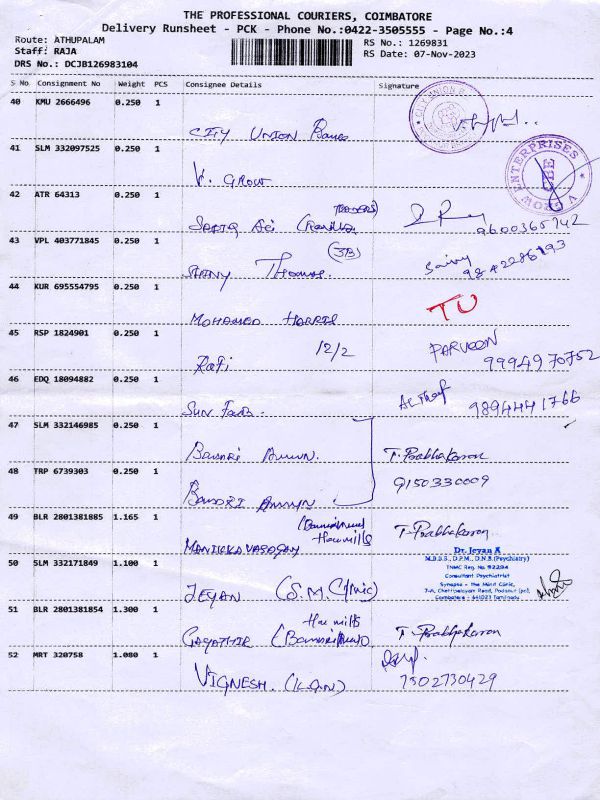 THE PROFESSIONAL COURIERS, COIMBATORE
Delivery Runsheet - PCK - Phone No.:0422-3505555 - Page No.:4
Route: ATHUPALAM
Staff: RAJA
DRS No.: DCJB126983104
RS No.: 1269831
RS Date: 07-Nov-2023
S No Consignment No Weight PCS Consignee Details Signature
40 KMU 2666496 0.250 1
CITY UNION
CITY UNION
41 SLM 332097525 0.250 1
V. GROW
V GROW ENTERPRISES CBE
42 ATR 64313 0.250 1
9600365742
43 VPL 403771845 0.250 1
SHINY Thomas (3B)
9842286193
44 KUR 695554795 0.250 1
MOHAMED HARRIS
TU
45 RSP 1824901 0.250 1
Rafi 12/2 PARVEEN
9994970752
46 EDQ 18094882 0.250 1
Sun Fab. Althaf 9894441766
47 SLM 332146985 0.250 1
Bannari Amman. T. Prabhakaran
48 TRP 6739303 0.250 1
BANNARI AMMAN. 9150330009
49 BLR 2801381885 1.165 1
T. Prabhakaran
MANICKAVASAGAM
50 SLM 332171849 1.100 1
JEYAN (S.M. Clinic)
Dr. Jeyan A
M.B.B.S., D.P.M., D.N.B.(Psychiatry)
TNMC Reg. No 92294
Consultant Psychiatrist
Synapse - the Mind Clinic,
7-A, Chettipalayam Road, Podanur (po),
Coimbatore - 641023 Tamilnadu
51 BLR 2801381854 1.300 1
GAYATHIR T. Prabhakaran
52 MRT 320758 1.080 1
VIGNESH.
7302730429